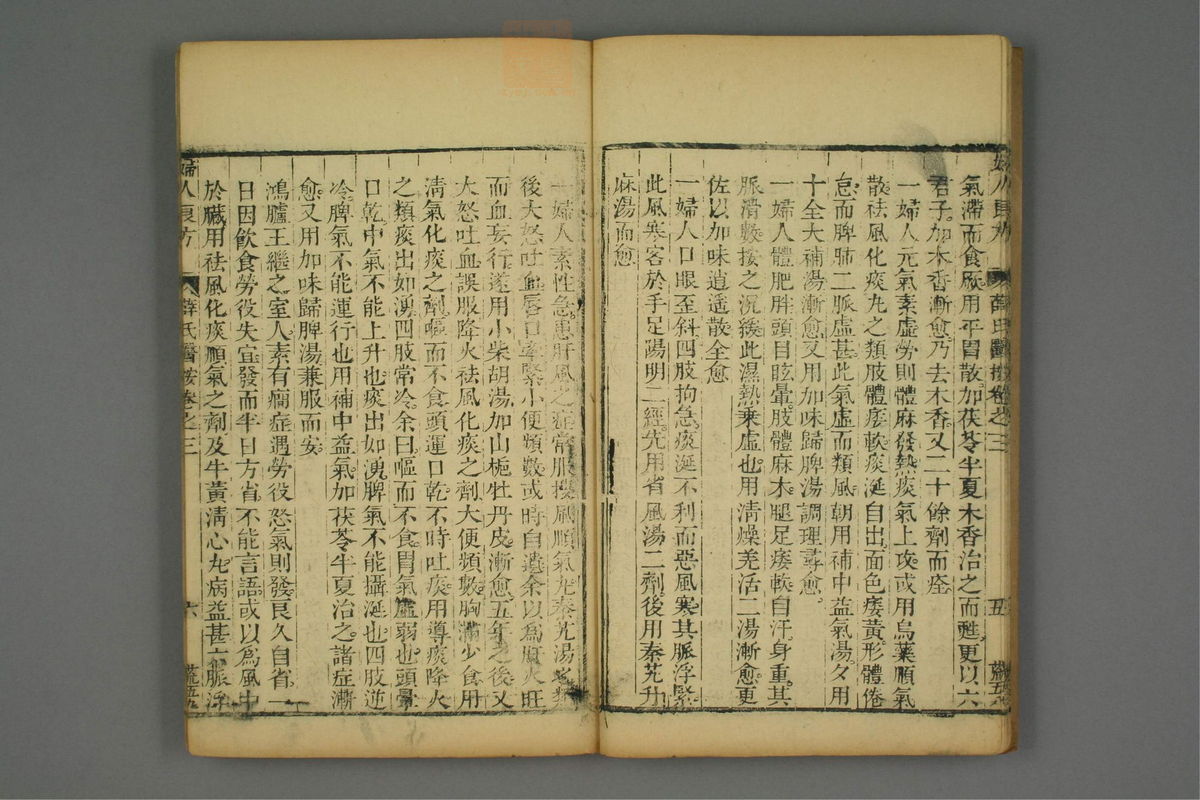 婦人良方 薛氏醫按卷之三 五 荒五
氣滯而食厥用平胃散加茯苓半夏木香治之而甦更以六
君子加木香漸愈乃去木香又二十餘劑而痊
一婦人元氣素虛勞則體麻發熱痰氣上攻或用烏藥順氣
散祛風化痰丸之類肢體痿軟痰涎自出面色痿黃形體倦
怠而脾肺二脈虛甚此氣虛而類風朝用補中益氣湯夕用
十全大補湯漸愈又用加味歸脾湯調理尋愈
一婦人體肥胖頭目眩暈肢體麻木腿足痿軟自汗身重其
脈滑數按之沉緩此濕熱乘虛也用清燥羌活二湯漸愈更
佐以加味逍遙散全愈
一婦人口眼歪斜四肢拘急痰涎不利而惡風寒其脈浮緊
此風寒客於手足陽明二經先用省風湯二劑後用秦艽升
麻湯而愈
一婦人素性急患肝風之症常服搜風順氣丸秦艽湯之類
後大怒吐血唇口牽緊小便頻數或時自遺余以為肝火旺
而血妄行遂用小柴胡湯加山梔牡丹皮漸愈五年之後又
大怒吐血誤服降火祛風化痰之劑大便頻數胸滿少食用
清氣化痰之劑嘔而不食頭運口乾不時吐痰用導痰降火
之類痰出如湧四肢常冷余曰嘔而不食胃氣虛弱也頭暈
口乾中氣不能上升也痰出如湧脾氣不能攝涎也四肢逆
冷脾氣不能運行也用補中益氣加茯苓半夏治之諸症漸
愈又用加味歸脾湯兼服而安
鴻臚王繼之室人素有癇症遇勞役怒氣則發良久自省一
日因飲食勞役失宜發而半日方省不能言語或以為風中
於臟用祛風化痰順氣之劑及牛黃清心丸病益甚六脈浮
婦人良方 薛氏醫按卷之三 六 荒五